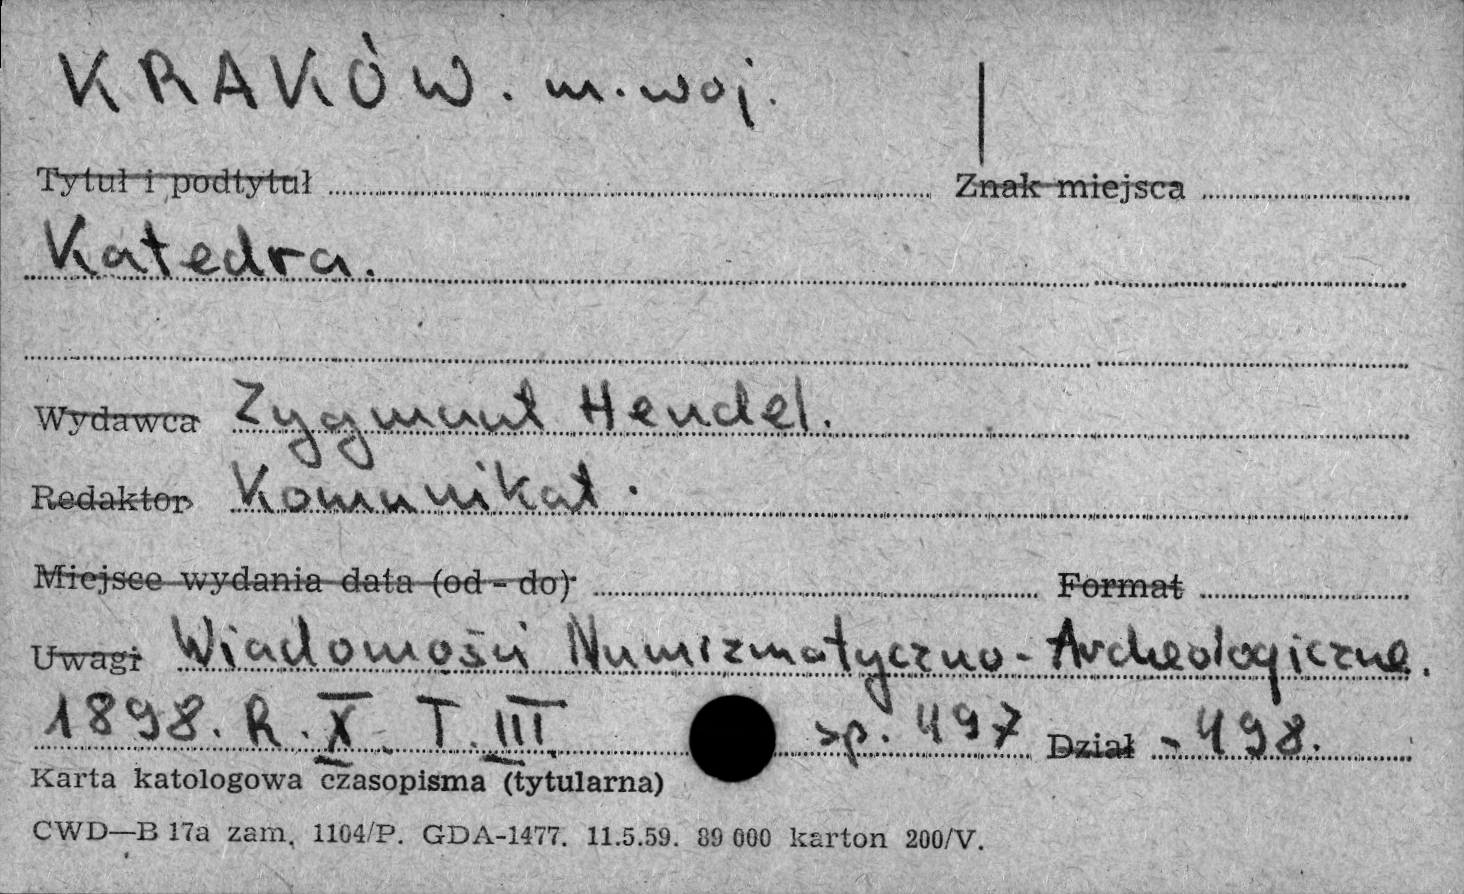 KRAKÓW. m. woj.
Tytuł i podtytuł Znak miejsca
Katedra.
Wydawca Zygmunt Hendel.
Redaktor Komunikat.
Miejsce wydania data (od - do) Format
Uwagi Wiadomości Numizmatyczno-Archeologiczne.
1898. R. X. T. III szp. 497 Dział - 498.
Karta katologowa czasopisma (tytularna)
CWD—B 17a zam. 1104/P. GDA-1477. 11.5.59. 89 000 karton 200/V.